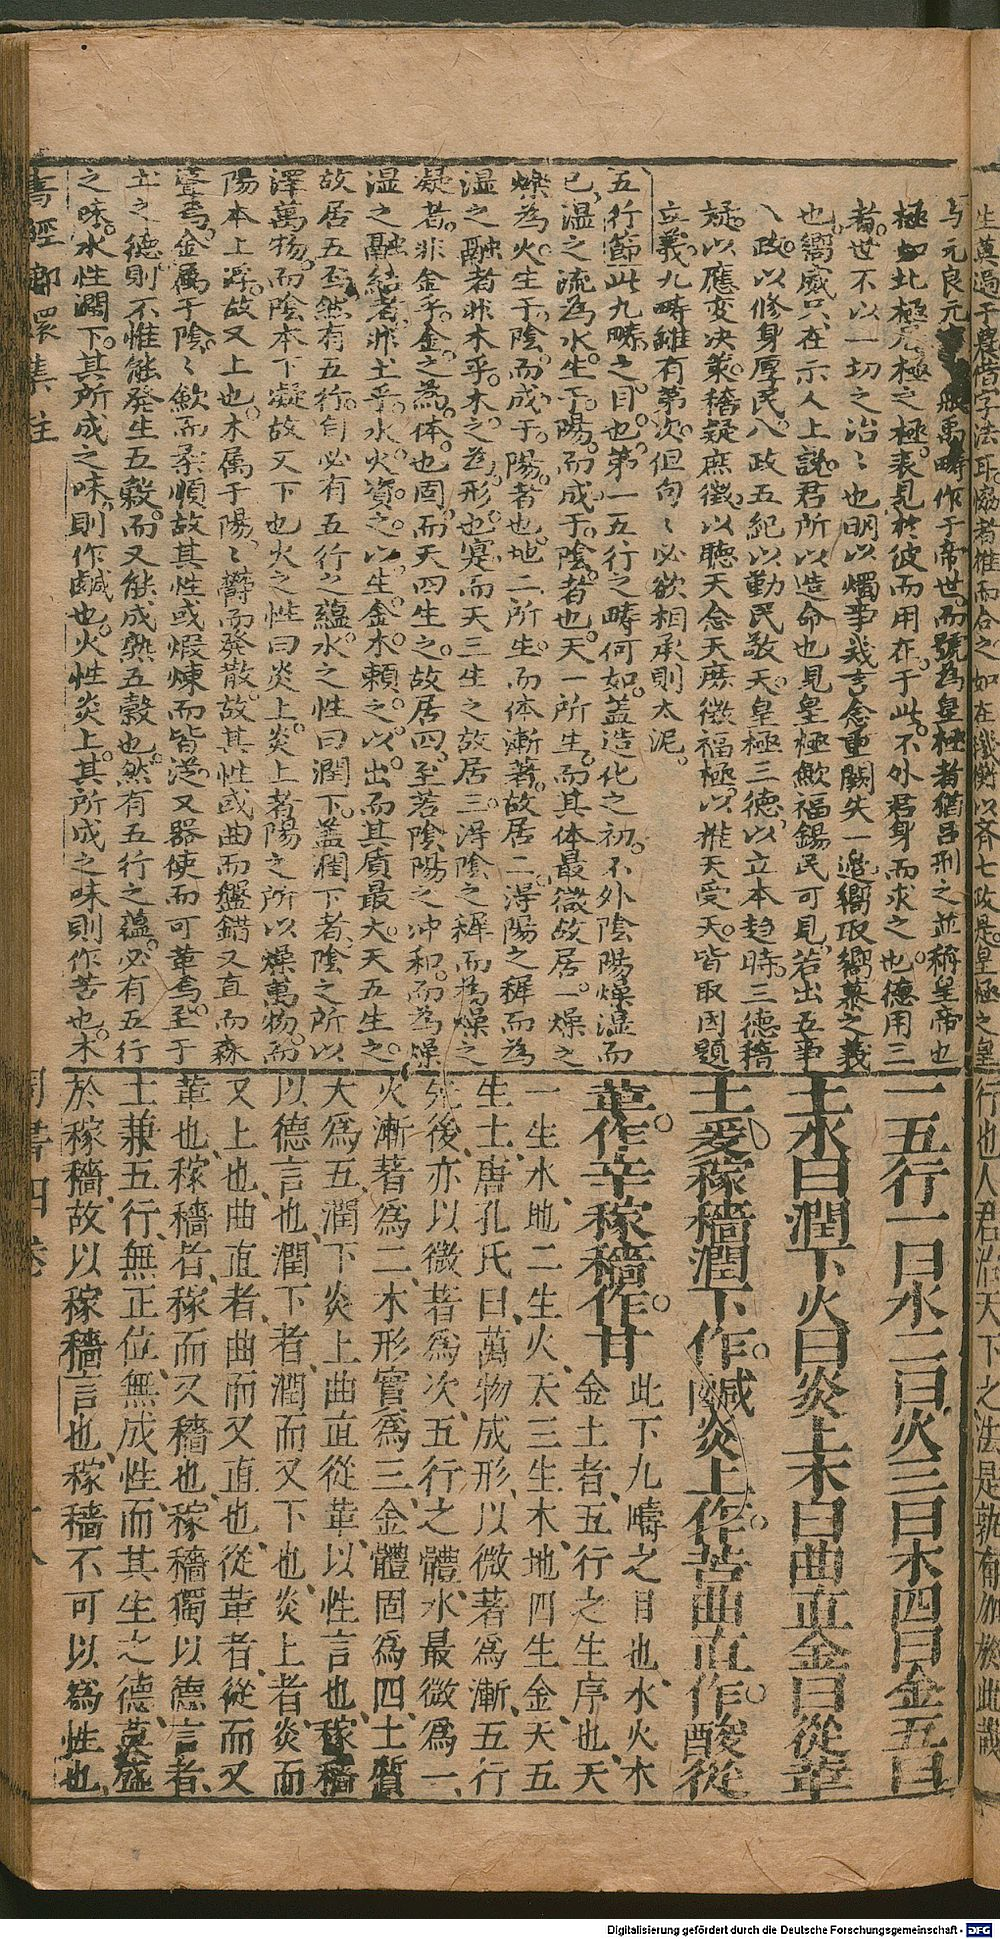 与元良元
禹疇作于帝世而號為皇極者猶呂刑之並稱皇帝也
極如北極屋極之極表見於彼而用在于此不外君身而求之也德用三
者世不以一切之治〻也明以燭事幾言念重闕失一邊嚮取嚮慕之義
也嚮威只在示人上說君所以造命也見皇極歛福錫民可見若出五事
八政以修身厚民八政五紀以勤民敬天皇極三德以立本趋時三德稽
疑以應变决策稽疑庶徵以聽天念天庶徵福極以推天受天皆取因題
立義九疇雖有第次但句〻必欲相承則太泥
五行節此九疇之目也第一五行之疇何如盖造化之初不外陰陽燥湿而
已湿之流為水生于陽而成于陰者也天一所生而其体最微故居一燥之
燥為火生于陰而成于陽者也地二所生而体漸著故居二淂陽之穉而為
湿之融者非木乎木之為形也寔而天三生之故居三淂陰之穉而為燥之
凝者非金乎金之為体也固而天四生之故居四至若陰陽之冲和而為燥
湿之融結者非土乎水火資之以生金木賴之以出而其質最大天五生之
故居五焉然有五行自必有五行之蘊水之性曰潤下盖潤下者陰之所以
澤萬物而陰本下凝故又下也火之性曰炎上炎上者陽之所以燥萬物而
陽本上浮故又上也木属于陽〻欝而發散故其性或曲而盤錯又直而森
聳焉金属于陰〻歛而柔順故其性或煆煉而皆從又器使而可革焉至于
土之德則不惟能発生五穀而又能成熟五穀也然有五行之蘊必有五行
之味水性潤下其所成之味則作鹹也火性炎上其所成之味則作苦也木
一五行一曰水二曰火三曰木四曰金五曰
土水曰潤下火曰炎上木曰曲直金曰從革
土爰稼穡潤下作鹹炎上作苦曲直作酸從
革作辛稼穡作甘
此下九疇之目也水火木
金土者五行之生序也天
一生水地二生火天三生木地四生金天五
生土唐孔氏曰萬物成形以微著為漸五行
先後亦以微著為次五行之體水最微為一
火漸著為二木形實為三金體固為四土質
大為五潤下炎上曲直從革以性言也稼穡
以德言也潤下者潤而又下也炎上者炎而
又上也曲直者曲而又直也從革者從而又
革也稼穡者稼而又穡也稼穡獨以德言者
土兼五行無正位無成性而其生之德莫盛
於稼穡故以稼穡言也稼穡不可以為性也
書經
集註
周書四卷
Digitalisierung gefördert durch die Deutsche Forschungsgemeinschaft - DFG